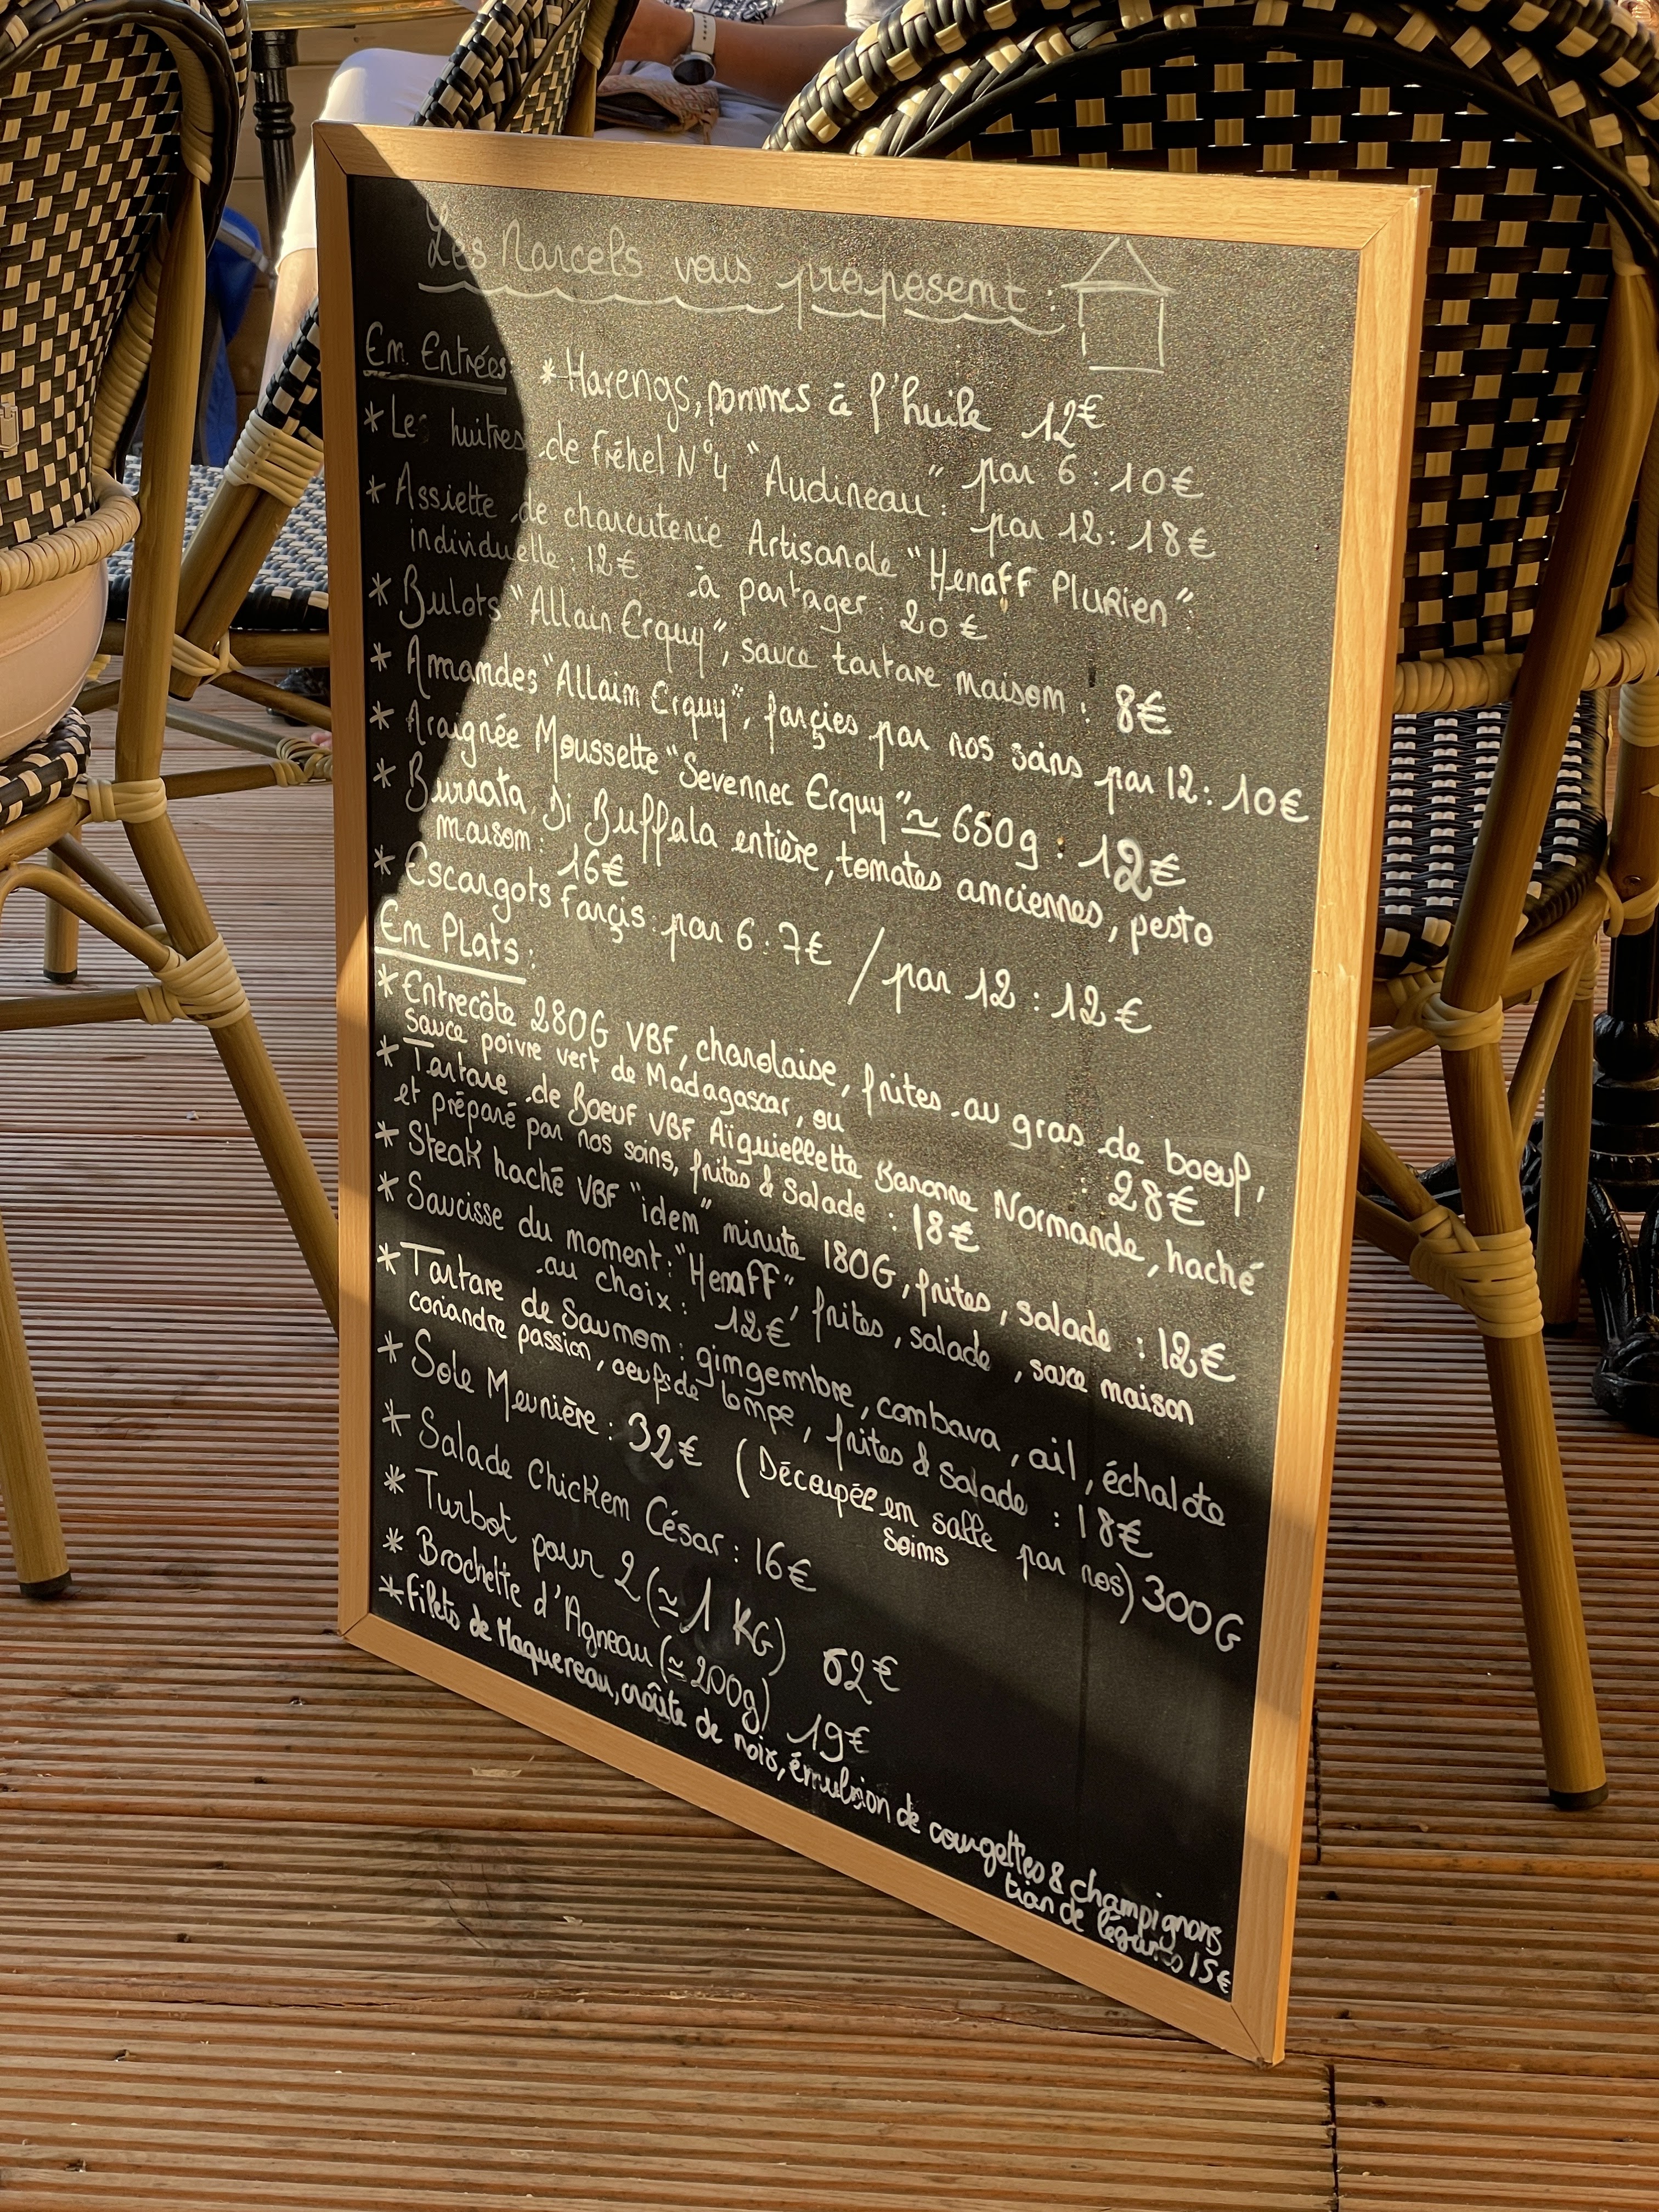 Les Marcels vous proposent :
En Entrées : * Harengs, pommes à l'huile 12€
* Les huitres de fréhel N°4 "Audineau" : par 6 : 10€
par 12 : 18€
* Assiette de charcuterie Artisanale "Henaff Plurien"
individuelle : 12€ à partager : 20€
* Bulots "Allain Erquy", sauce tartare maison : 8€
* Amandes "Allain Erquy", farçies par nos soins par 12 : 10€
* Araignée Moussette "Sevennec Erquy" ≃ 650g : 12€
* Burrata Di Buffala entière, tomates anciennes, pesto
maison : 16€
* Escargots farçis : par 6 : 7€ / par 12 : 12€
En Plats :
* Entrecôte 280G VBF, charolaise, frites au gras de boeuf,
sauce poivre vert de Madagascar, ou : 28€
* Tartare de Boeuf VBF Aïguiellette Baronne Normande, haché
et préparé par nos soins, frites & Salade : 18€
* Steak haché VBF "idem" minute 180G, frites, salade : 12€
* Saucisse du moment : "Henaff", frites, salade, sauce maison
au choix : 12€
* Tartare de Saumon : gimgembre, combava, ail, échalote
coriandre passion, oeufs de lompe, frites & Salade : 18€
* Sole Meunière : 32€ (Découpée en salle par nos) 300G
soins
* Salade Chicken César : 16€
* Turbot pour 2 (≃ 1 KG) 62€
* Brochette d'Agneau (≃ 200g) 19€
* Filets de Maquereau, croûte de noix, émulsion de courgettes & champignons
tian de légumes 15€